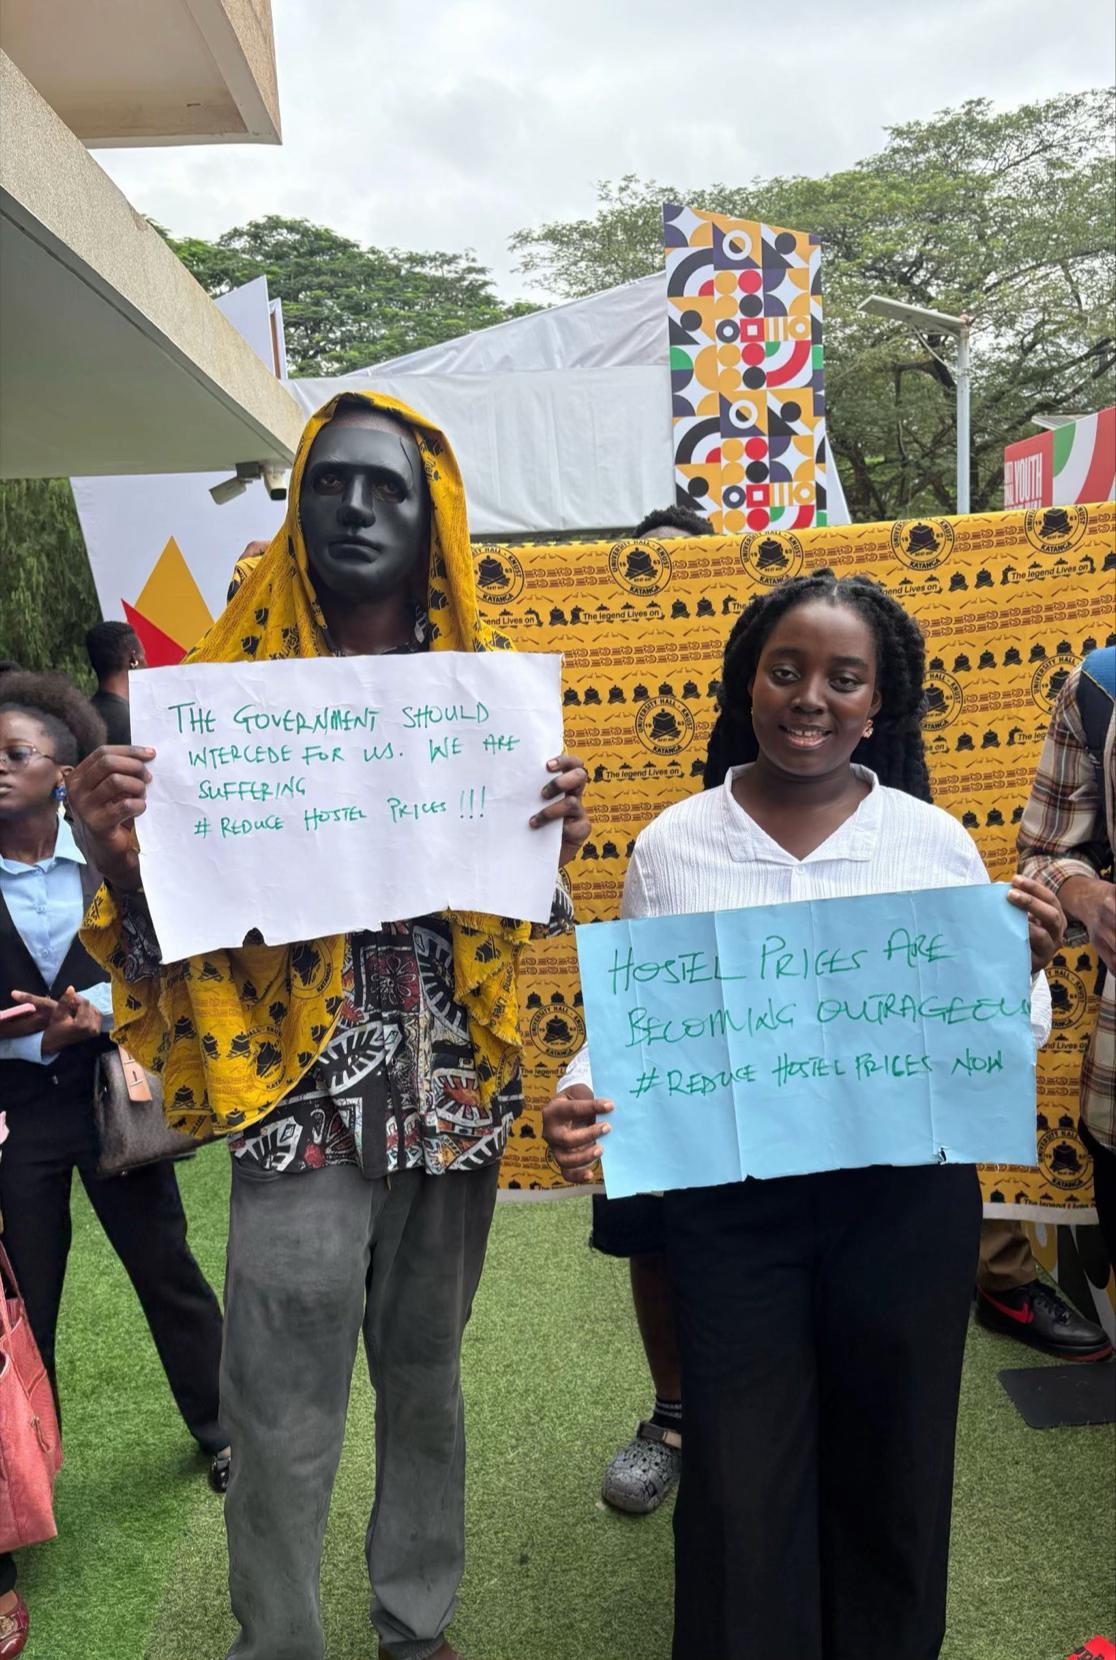 THE GOVERNMENT SHOULD
INTERCEDE FOR US. WE ARE
SUFFERING
# REDUCE HOSTEL PRICES !!!
HOSTEL PRICES ARE
BECOMING OUTRAGEOU
# REDUCE HOSTEL PRICES NOW
UNIVERSITY HALL - KNUST
1963
KATANGA
The legend Lives on
YOUTH